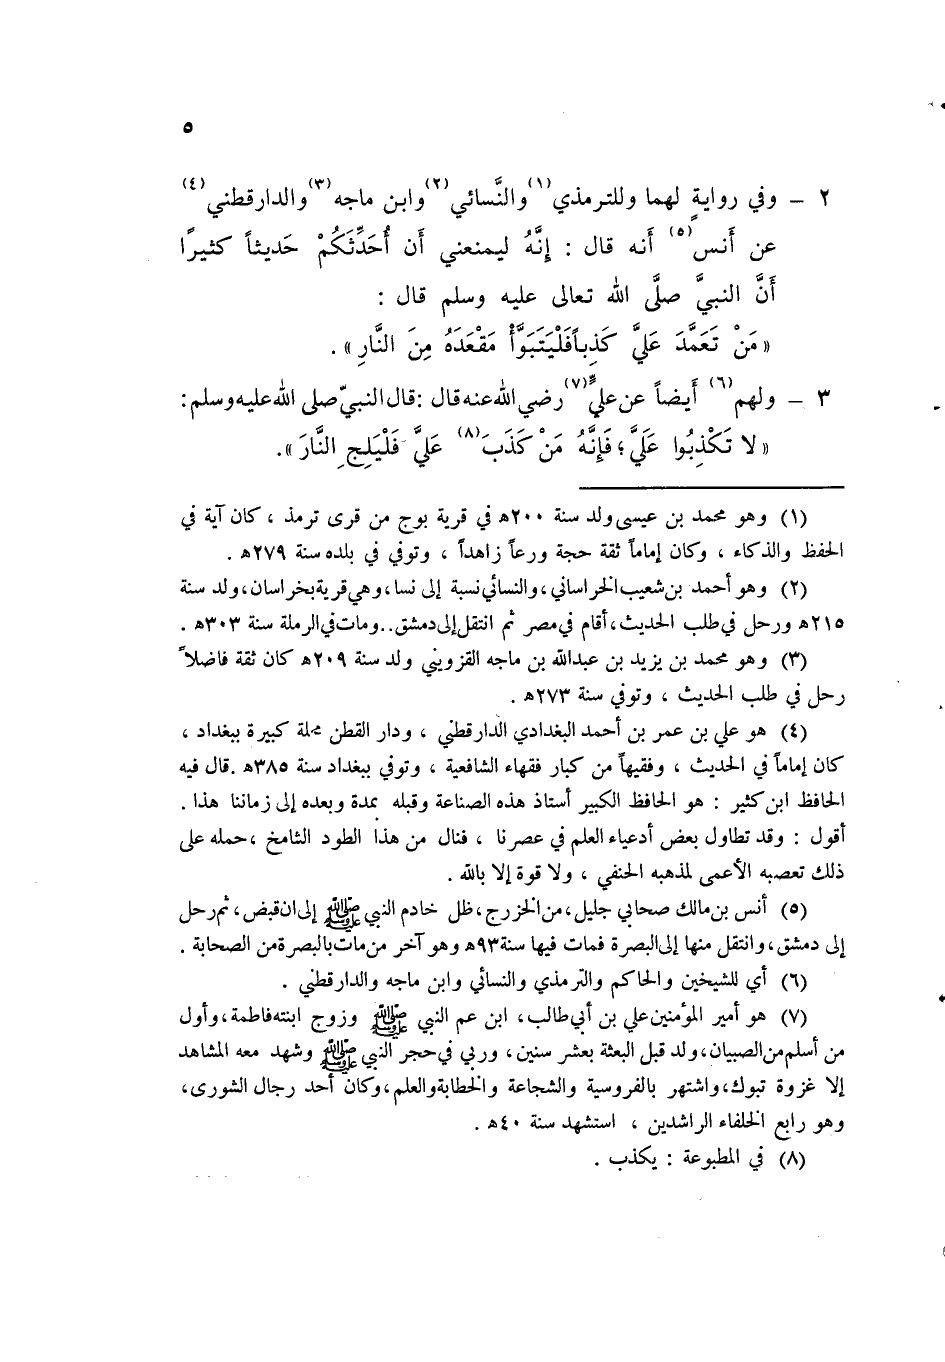 ٥
٢ – وفي روايةٍ لهما وللترمذي(١) والنَّسائي(٢) وابن ماجه(٣) والدارقطني(٤)
عن أَنس(٥) أَنه قال : إِنَّهُ ليمنعني أَن أُحَدِّثَكُمْ حَديثاً كثيرًا
أَنَّ النبيَّ صلَّى الله تعالى عليه وسلم قال :
« مَنْ تَعَمَّدَ عَلَيَّ كَذِباً فَلْيَتَبَوَّأْ مَقْعَدَهُ مِنَ النَّارِ » .
٣ – ولهم(٦) أَيضاً عن عليٍّ(٧) رضي الله عنه قال : قال النبيّ صلى الله عليه وسلم :
« لا تَكْذِبُوا عَلَيَّ ؛ فَإِنَّهُ مَنْ كَذَبَ(٨) عَلَيَّ فَلْيَلِجِ النَّارَ » .
(١) وهو محمد بن عيسى ولد سنة ٢٠٠ه في قرية بوج من قرى ترمذ ، كان آية في
الحفظ والذكاء ، وكان إماماً ثقة حجة ورعاً زاهداً ، وتوفي في بلده سنة ٢٧٩ه .
(٢) وهو أحمد بن شعيب الخراساني ، والنسائي نسبة إلى نسا ، وهي قرية بخراسان ، ولد سنة
٢١٥ه ورحل في طلب الحديث ، أقام في مصر ثم انتقل إلى دمشق .. ومات في الرملة سنة ٣٠٣ه .
(٣) وهو محمد بن يزيد بن عبدالله بن ماجه القزويني ولد سنة ٢٠٩ه كان ثقة فاضلاً
رحل في طلب الحديث ، وتوفي سنة ٢٧٣ه .
(٤) هو علي بن عمر بن أحمد البغدادي الدارقطني ، ودار القطن محلة كبيرة ببغداد ،
كان إماماً في الحديث ، وفقيهاً من كبار فقهاء الشافعية ، وتوفي ببغداد سنة ٣٨٥ه . قال فيه
الحافظ ابن كثير : هو الحافظ الكبير أستاذ هذه الصناعة وقبله بمدة وبعده إلى زماننا هذا .
أقول : وقد تطاول بعض أدعياء العلم في عصرنا ، فنال من هذا الطود الشامخ ، حمله على
ذلك تعصبه الأعمى لمذهبه الحنفي ، ولا قوة إلا بالله .
(٥) أنس بن مالك صحابي جليل ، من الخزرج ، ظل خادم النبي ﷺ إلى ان قبض ، ثم رحل
إلى دمشق ، وانتقل منها إلى البصرة فمات فيها سنة ٩٣ه وهو آخر من مات بالبصرة من الصحابة .
(٦) أي للشيخين والحاكم والترمذي والنسائي وابن ماجه والدارقطني .
(٧) هو أمير المؤمنين علي بن أبي طالب ، ابن عم النبي ﷺ وزوج ابنته فاطمة ، وأول
من أسلم من الصبيان ، ولد قبل البعثة بعشر سنين ، وربي في حجر النبي ﷺ وشهد معه المشاهد
إلا غزوة تبوك ، واشتهر بالفروسية والشجاعة والخطابة والعلم ، وكان أحد رجال الشورى ،
وهو رابع الخلفاء الراشدين ، استشهد سنة ٤٠ه .
(٨) في المطبوعة : يكذب .